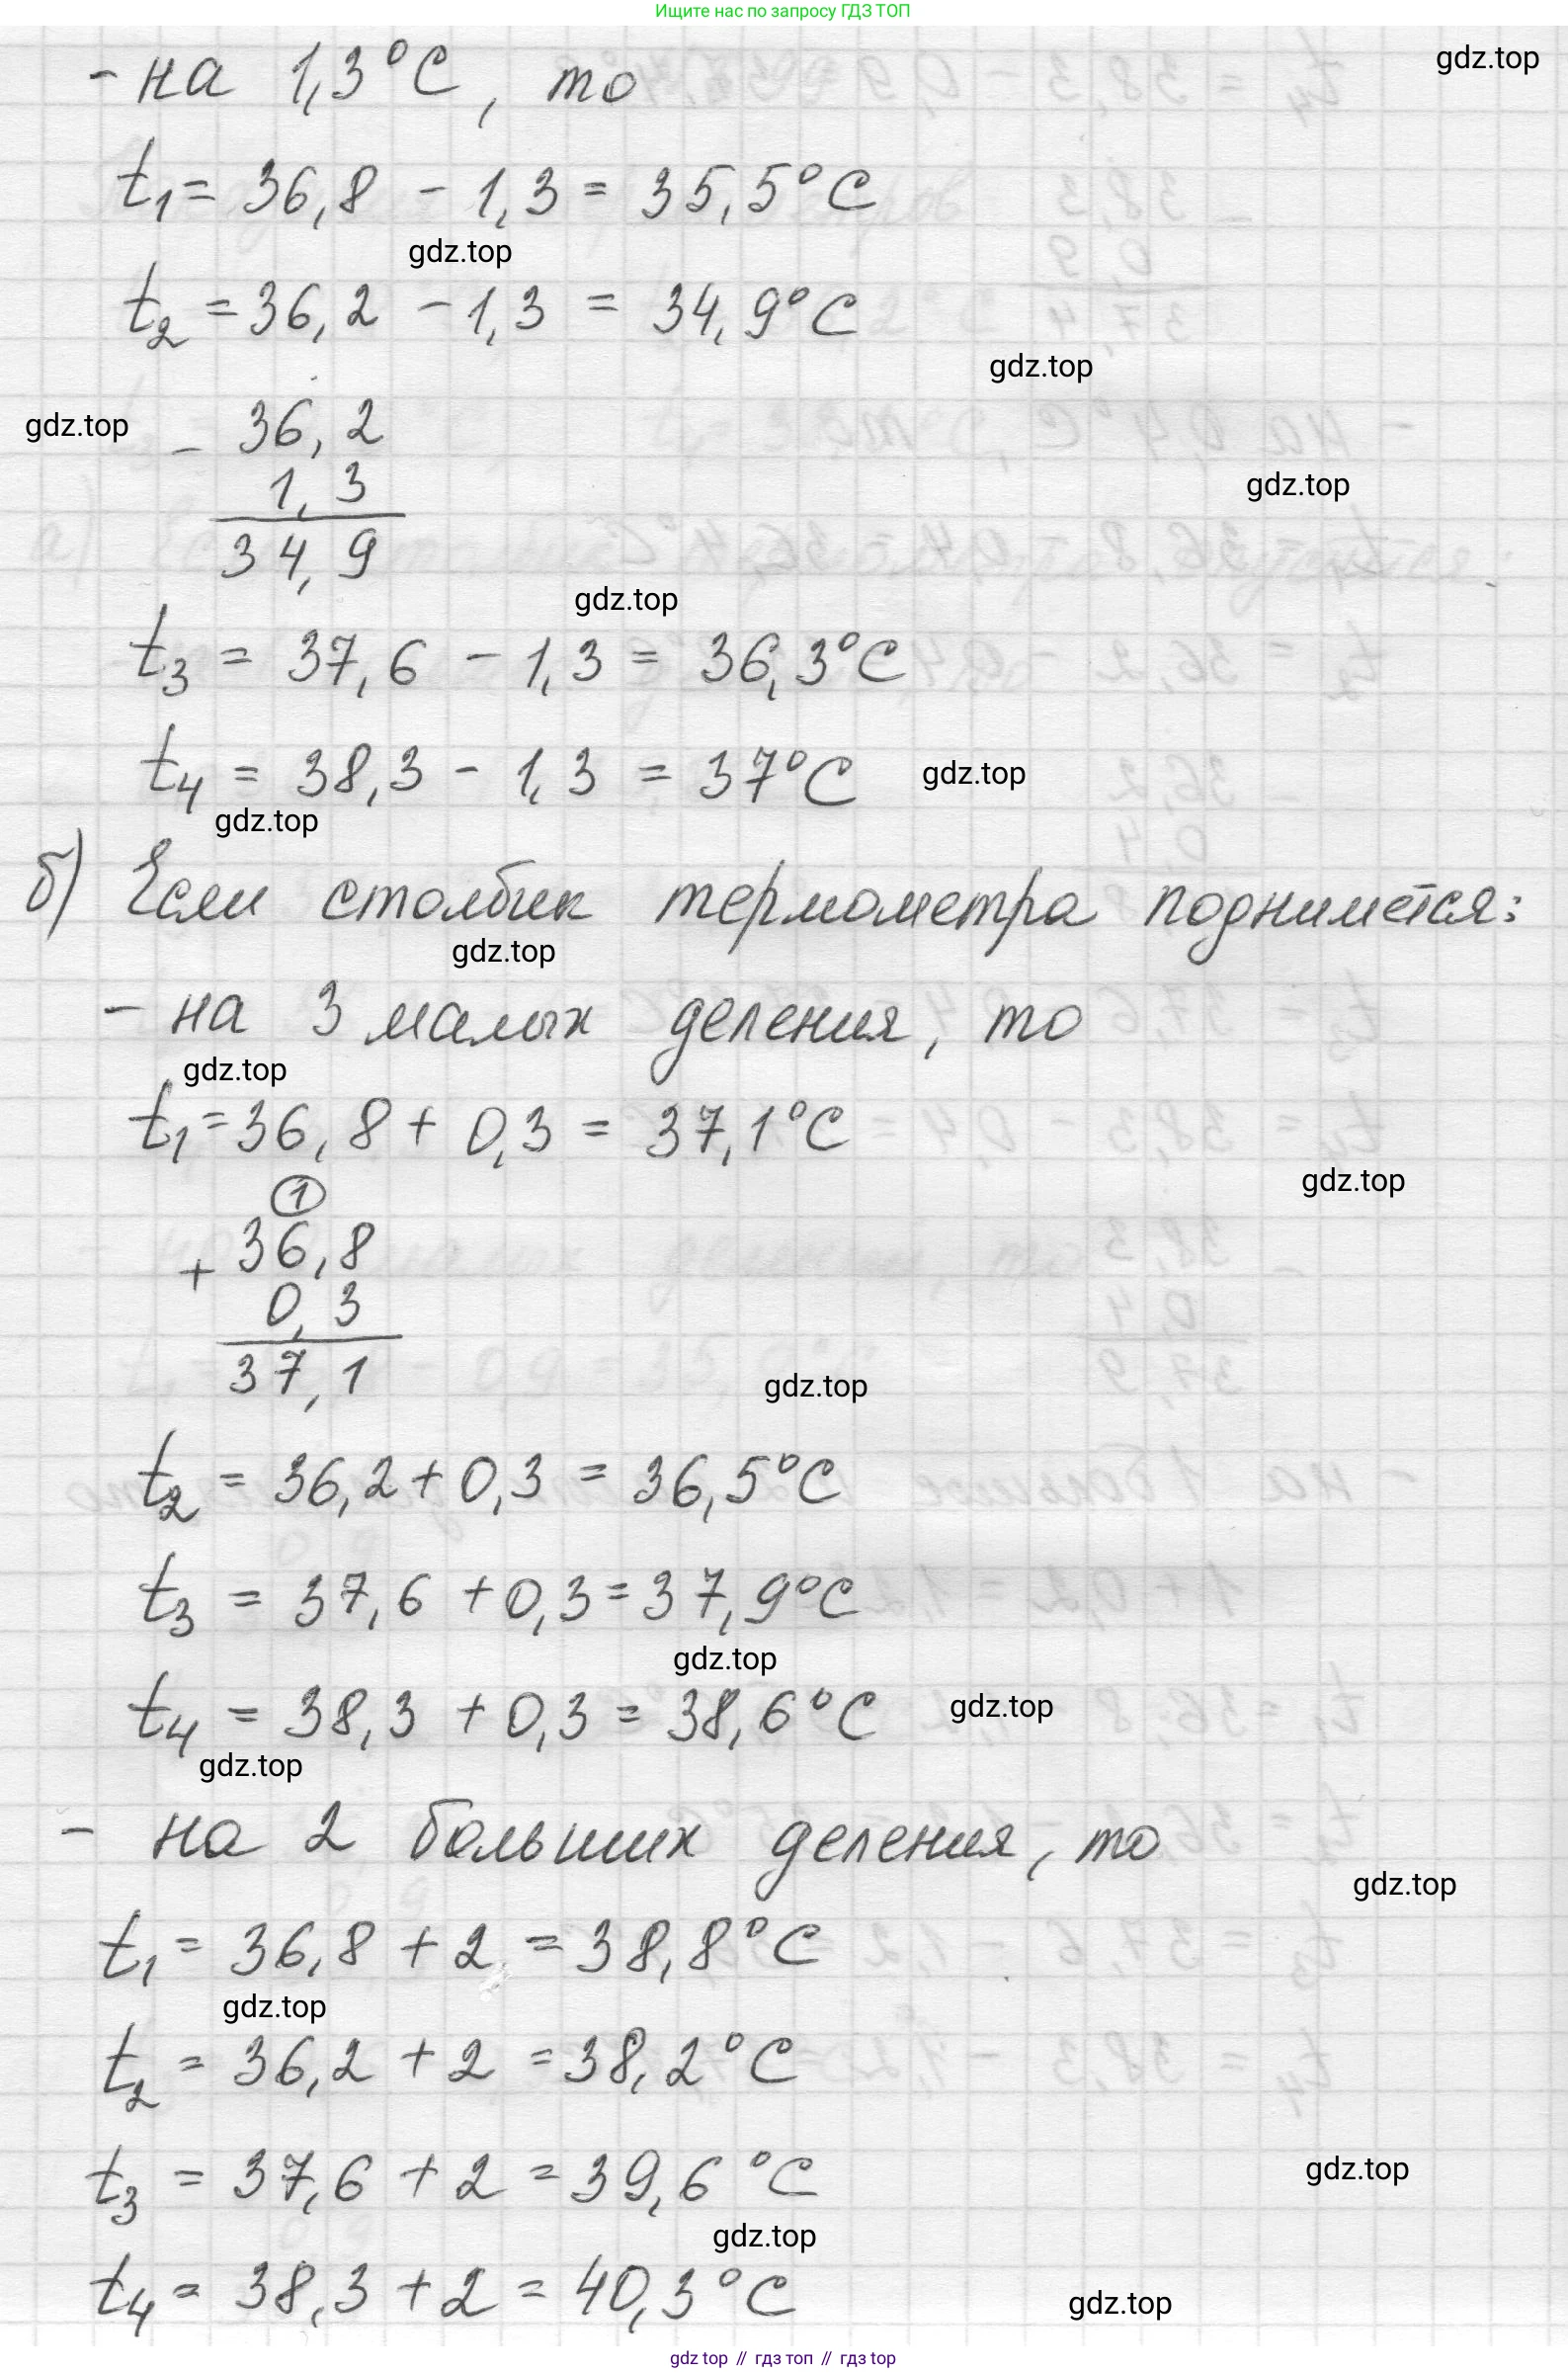 Ищите нас по запросу ГДЗ ТОП
- на 1,3°C, то
gdz.top
t₁ = 36,8 - 1,3 = 35,5°C
gdz.top
t₂ = 36,2 - 1,3 = 34,9°C
gdz.top
gdz.top
- 36,2
1,3
34,9
gdz.top
gdz.top
t₃ = 37,6 - 1,3 = 36,3°C
t₄ = 38,3 - 1,3 = 37°C
gdz.top
gdz.top
б) Если столбик термометра поднимется:
gdz.top
- на 3 малых деления, то
gdz.top
t₁ = 36,8 + 0,3 = 37,1°C
gdz.top
1
+ 36,8
0,3
37,1
gdz.top
t₂ = 36,2 + 0,3 = 36,5°C
t₃ = 37,6 + 0,3 = 37,9°C
gdz.top
t₄ = 38,3 + 0,3 = 38,6°C
gdz.top
gdz.top
- на 2 больших деления, то
gdz.top
t₁ = 36,8 + 2 = 38,8°C
gdz.top
t₂ = 36,2 + 2 = 38,2°C
t₃ = 37,6 + 2 = 39,6°C
gdz.top
gdz.top
t₄ = 38,3 + 2 = 40,3°C
gdz.top
gdz top // гдз топ // гдз top